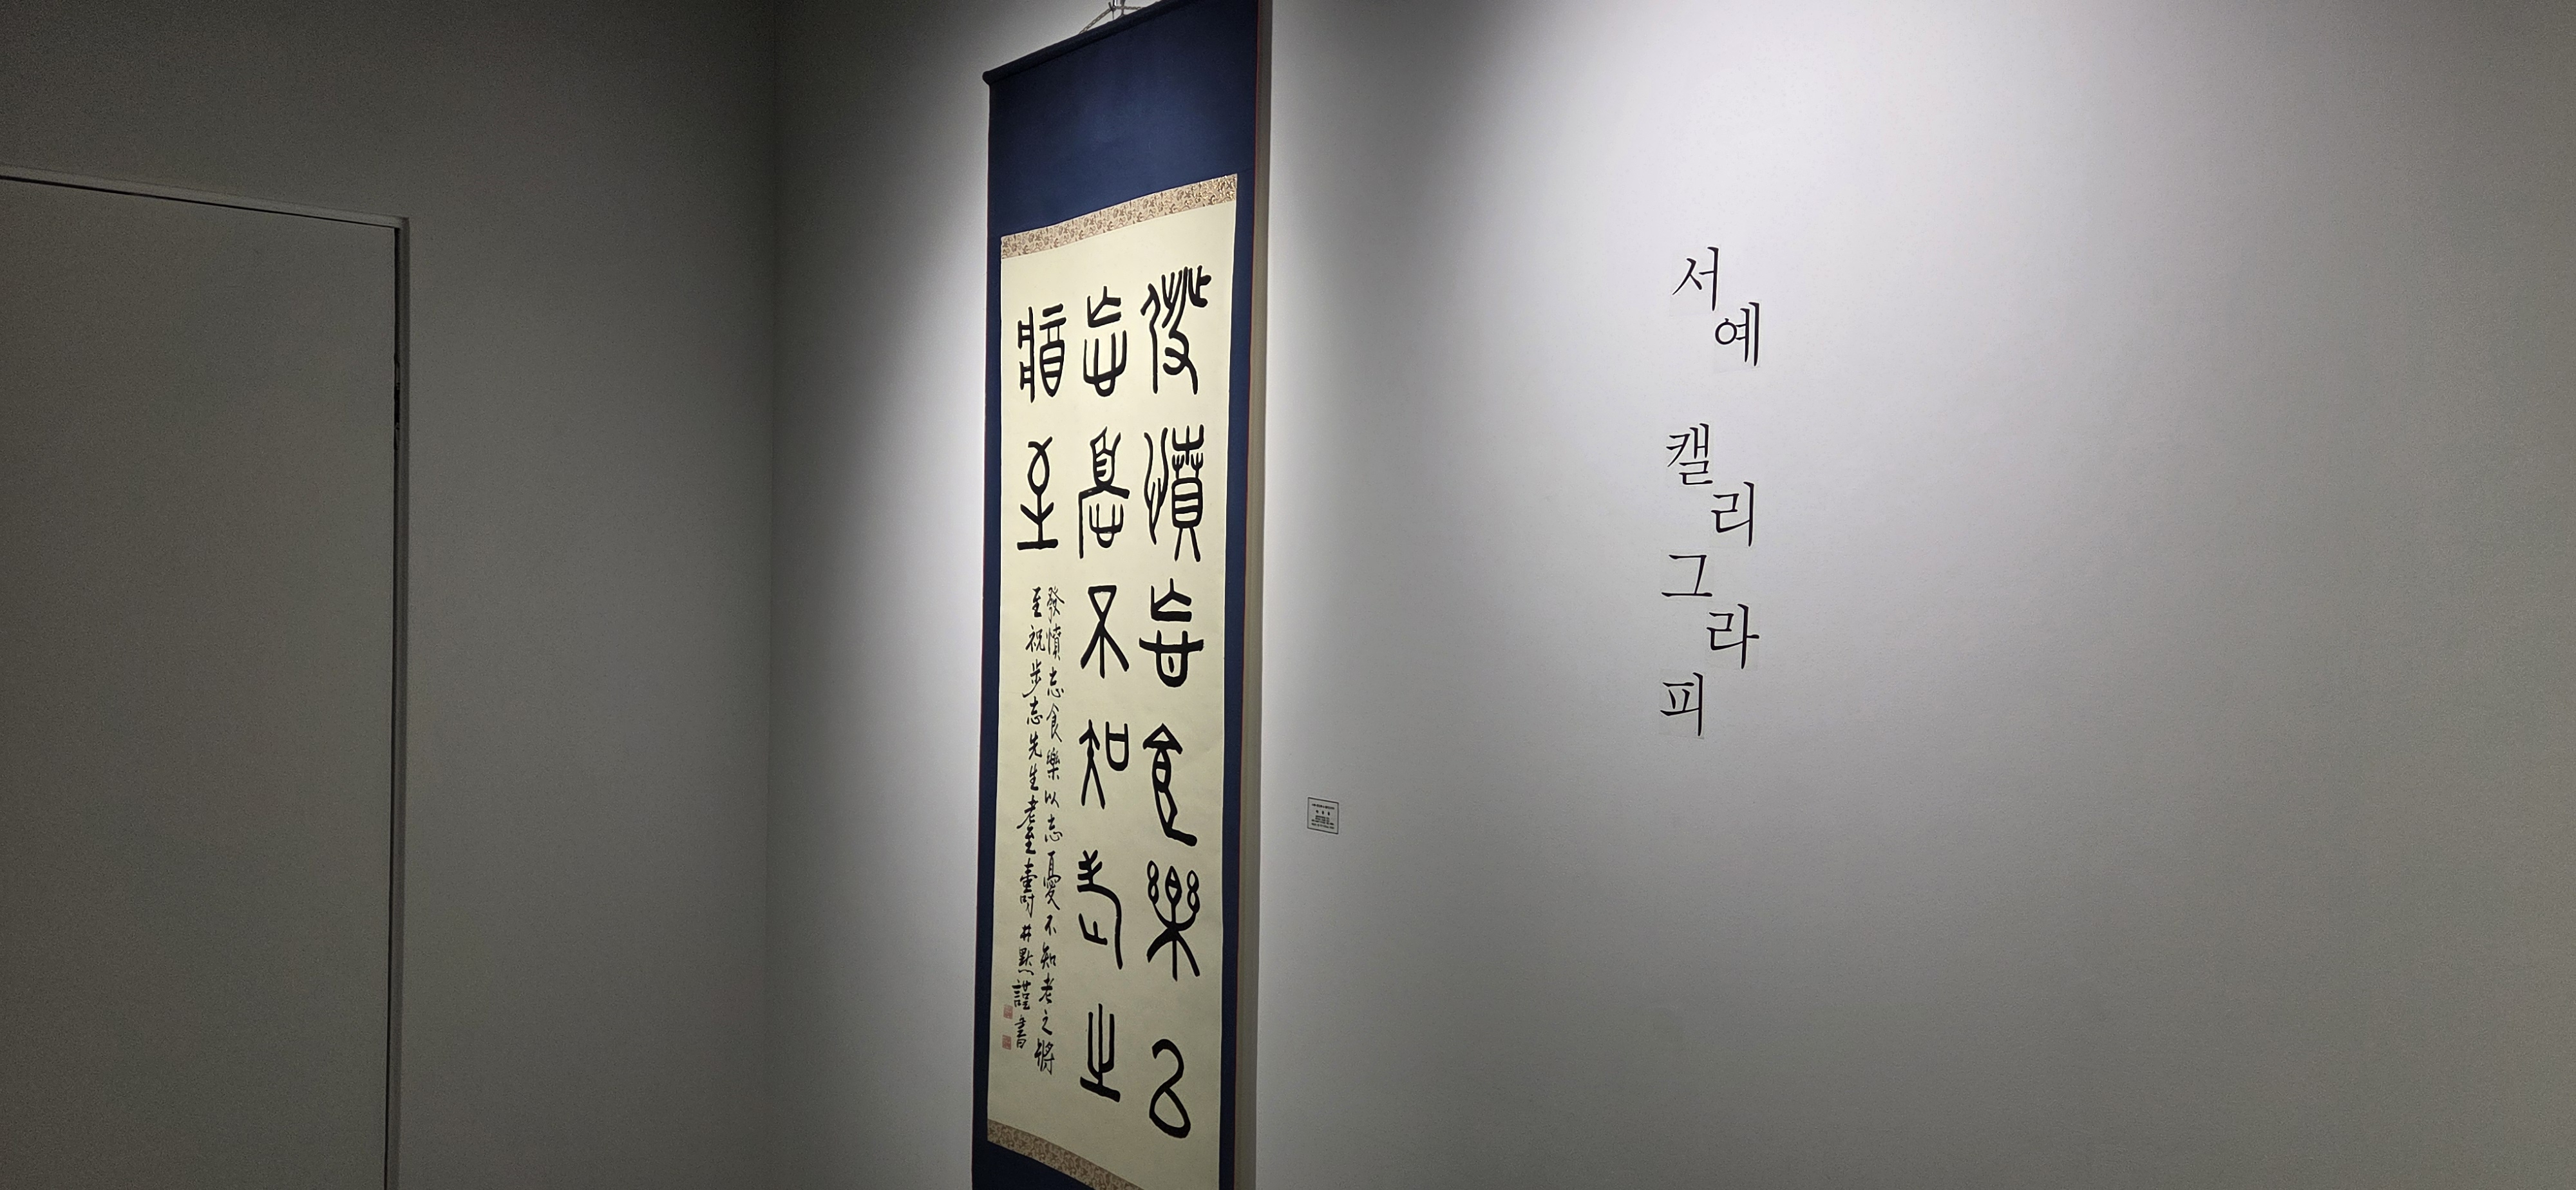 發憤忘食樂以
忘憂不知老之
將至
發憤忘食樂以忘憂不知老之將
至祝步志先生耋壽井謹書
서예
캘리그라피